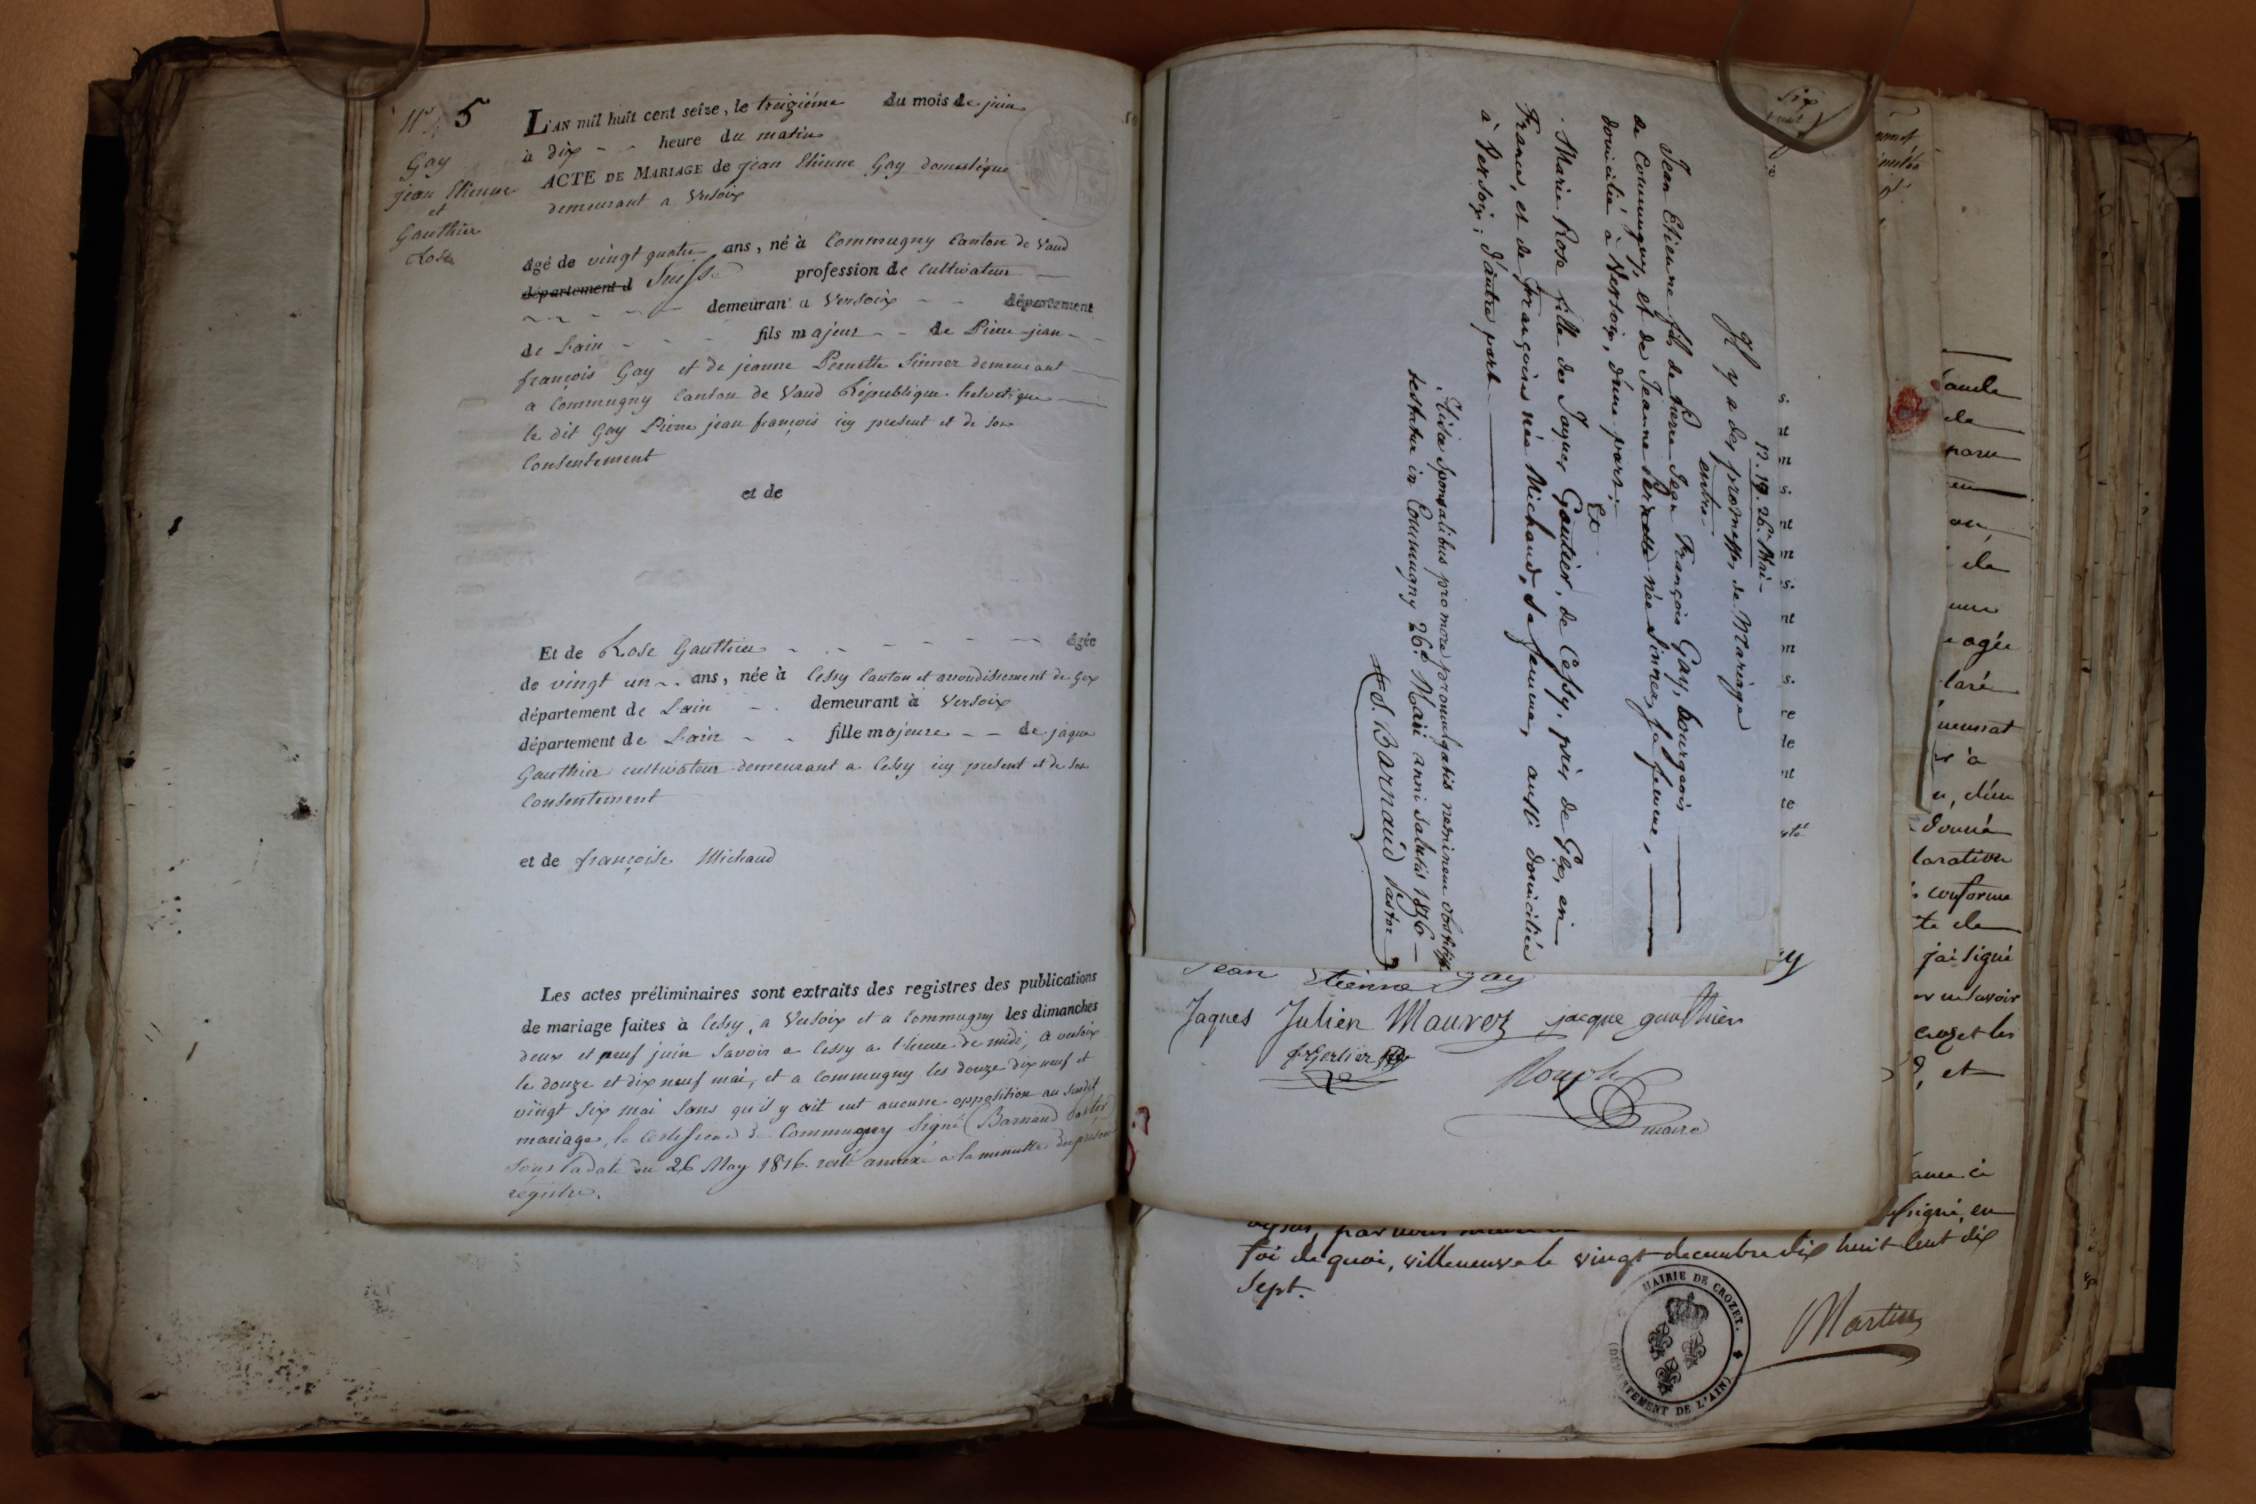 N° 5
Gay
jean Etienne
et
Gauthier
Rose
L'AN mil huit cent seize, le treizième du mois de juin
à dix - - heure du matin
ACTE DE MARIAGE de jean Etienne Gay domestique
demeurant a Versoix
âgé de vingt quatre ans, né à Commugny Canton de Vaud
département d Suisse profession de cultivateur
demeurant a Versoix - - département
de L'ain - - - fils majeur - - de Pierre jean
françois Gay et de jeanne Pernette Sinner demeurant
a Commugny Canton de Vaud République helvetique
le dit Gay Pierre jean françois icy present et de son
Consentement
et de
Et de Rose Gauthier âgée
de vingt un ans, née à Cessy Canton et arrondissement de Gex
département de L'ain demeurant à Versoix
département de L'ain - - fille majeure - - de jaque
Gauthier cultivateur demeurant a Cessy icy present et de son
Consentement
et de françoise Michaud
Les actes préliminaires sont extraits des registres des publications
de mariage faites à Cessy, a Versoix et a Commugny les dimanches
deux et neuf juin Savoir a Cessy a l'heure de midi, a versoix
le douze et dix neuf mai, et a Commugny les douze dix neuf et
vingt six mai Sans qu'il y ait eut aucune opposition au Susdit
mariage, le Certificat de Commugny Signé (Barnaud pastor
Sous la date du 26 May 1816. resté annéxé a la minutte du présent
régistre.
12. 19. 26. Mai
Il y a des promesses de Mariage
entre
Jean Etienne fils de Pierre Jean François Gay, bourgeois
de Commugny, et de Jeanne Pernette née Sinner sa femme,
domicilié à Versoix, d'une part;
Et
Marie Rose fille de Jaques Gautier, de Cessy, près de Gex, en
France, et de Françoise née Michaud, sa femme, aussi domiciliée
à Versoix; d'autre part
Hisce Sponsalibus pro more promulgatis neminem obstitisse
testatur in Commugny 26e Maii anni Salutis 1816
S. Barnaud Pastor
Jean Etienne Gay
Jaques Julien Maurez jacque gauthier
Gerlier
Rouph
maire
foi de quoi, villeneuve le vingt decembre dix huit Cent dix
Sept.
MAIRIE DE CROZET.
(DÉPARTEMENT DE L'AIN)
Martin
ogée
conforme
j'ai signé
crozet les
et
signé, en